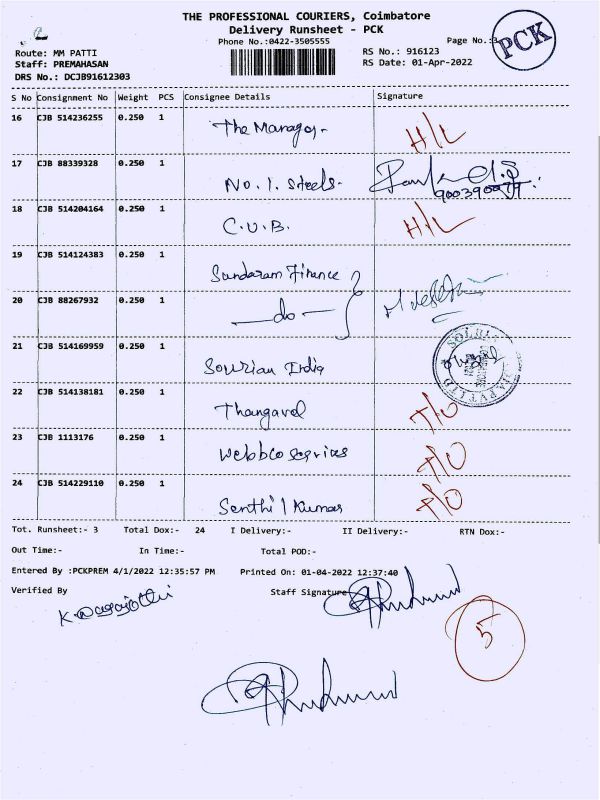 THE PROFESSIONAL COURIERS, Coimbatore
Delivery Runsheet - PCK
Phone No.:0422-3505555
Page No.:3
PCK
Route: MM PATTI
Staff: PREMAHASAN
DRS No.: DCJB91612303
RS No.: 916123
RS Date: 01-Apr-2022
S No Consignment No Weight PCS Consignee Details Signature
16 CJB 514236255 0.250 1 The Manager H/L
17 CJB 88339328 0.250 1 No. 1. Steels.
18 CJB 514204164 0.250 1 C.U.B. H/L
19 CJB 514124383 0.250 1 Sundaram Finance
20 CJB 88267932 0.250 1 —do—
21 CJB 514169959 0.250 1 India
22 CJB 514138181 0.250 1 Thangavel
23 CJB 1113176 0.250 1
24 CJB 514229110 0.250 1 Senthil Kumar
Tot. Runsheet:- 3 Total Dox:- 24 I Delivery:- II Delivery:- RTN Dox:-
Out Time:- In Time:- Total POD:-
Entered By :PCKPREM 4/1/2022 12:35:57 PM Printed On: 01-04-2022 12:37:40
Verified By Staff Signature
5